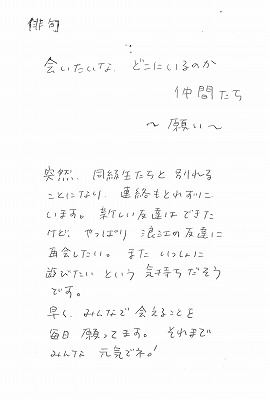 俳句
会いたいな、どこにいるのか
仲間たち
～願い～
突然、同級生たちと別れる
ことになり、連絡もとれずに
います。新しい友達はできた
けど、やっぱり浪江の友達に
再会したい。またいっしょに
遊びたいという気持ちだそう
です。
早く、みんなで会えることを
毎日願ってます。それまで
みんな元気でネ!